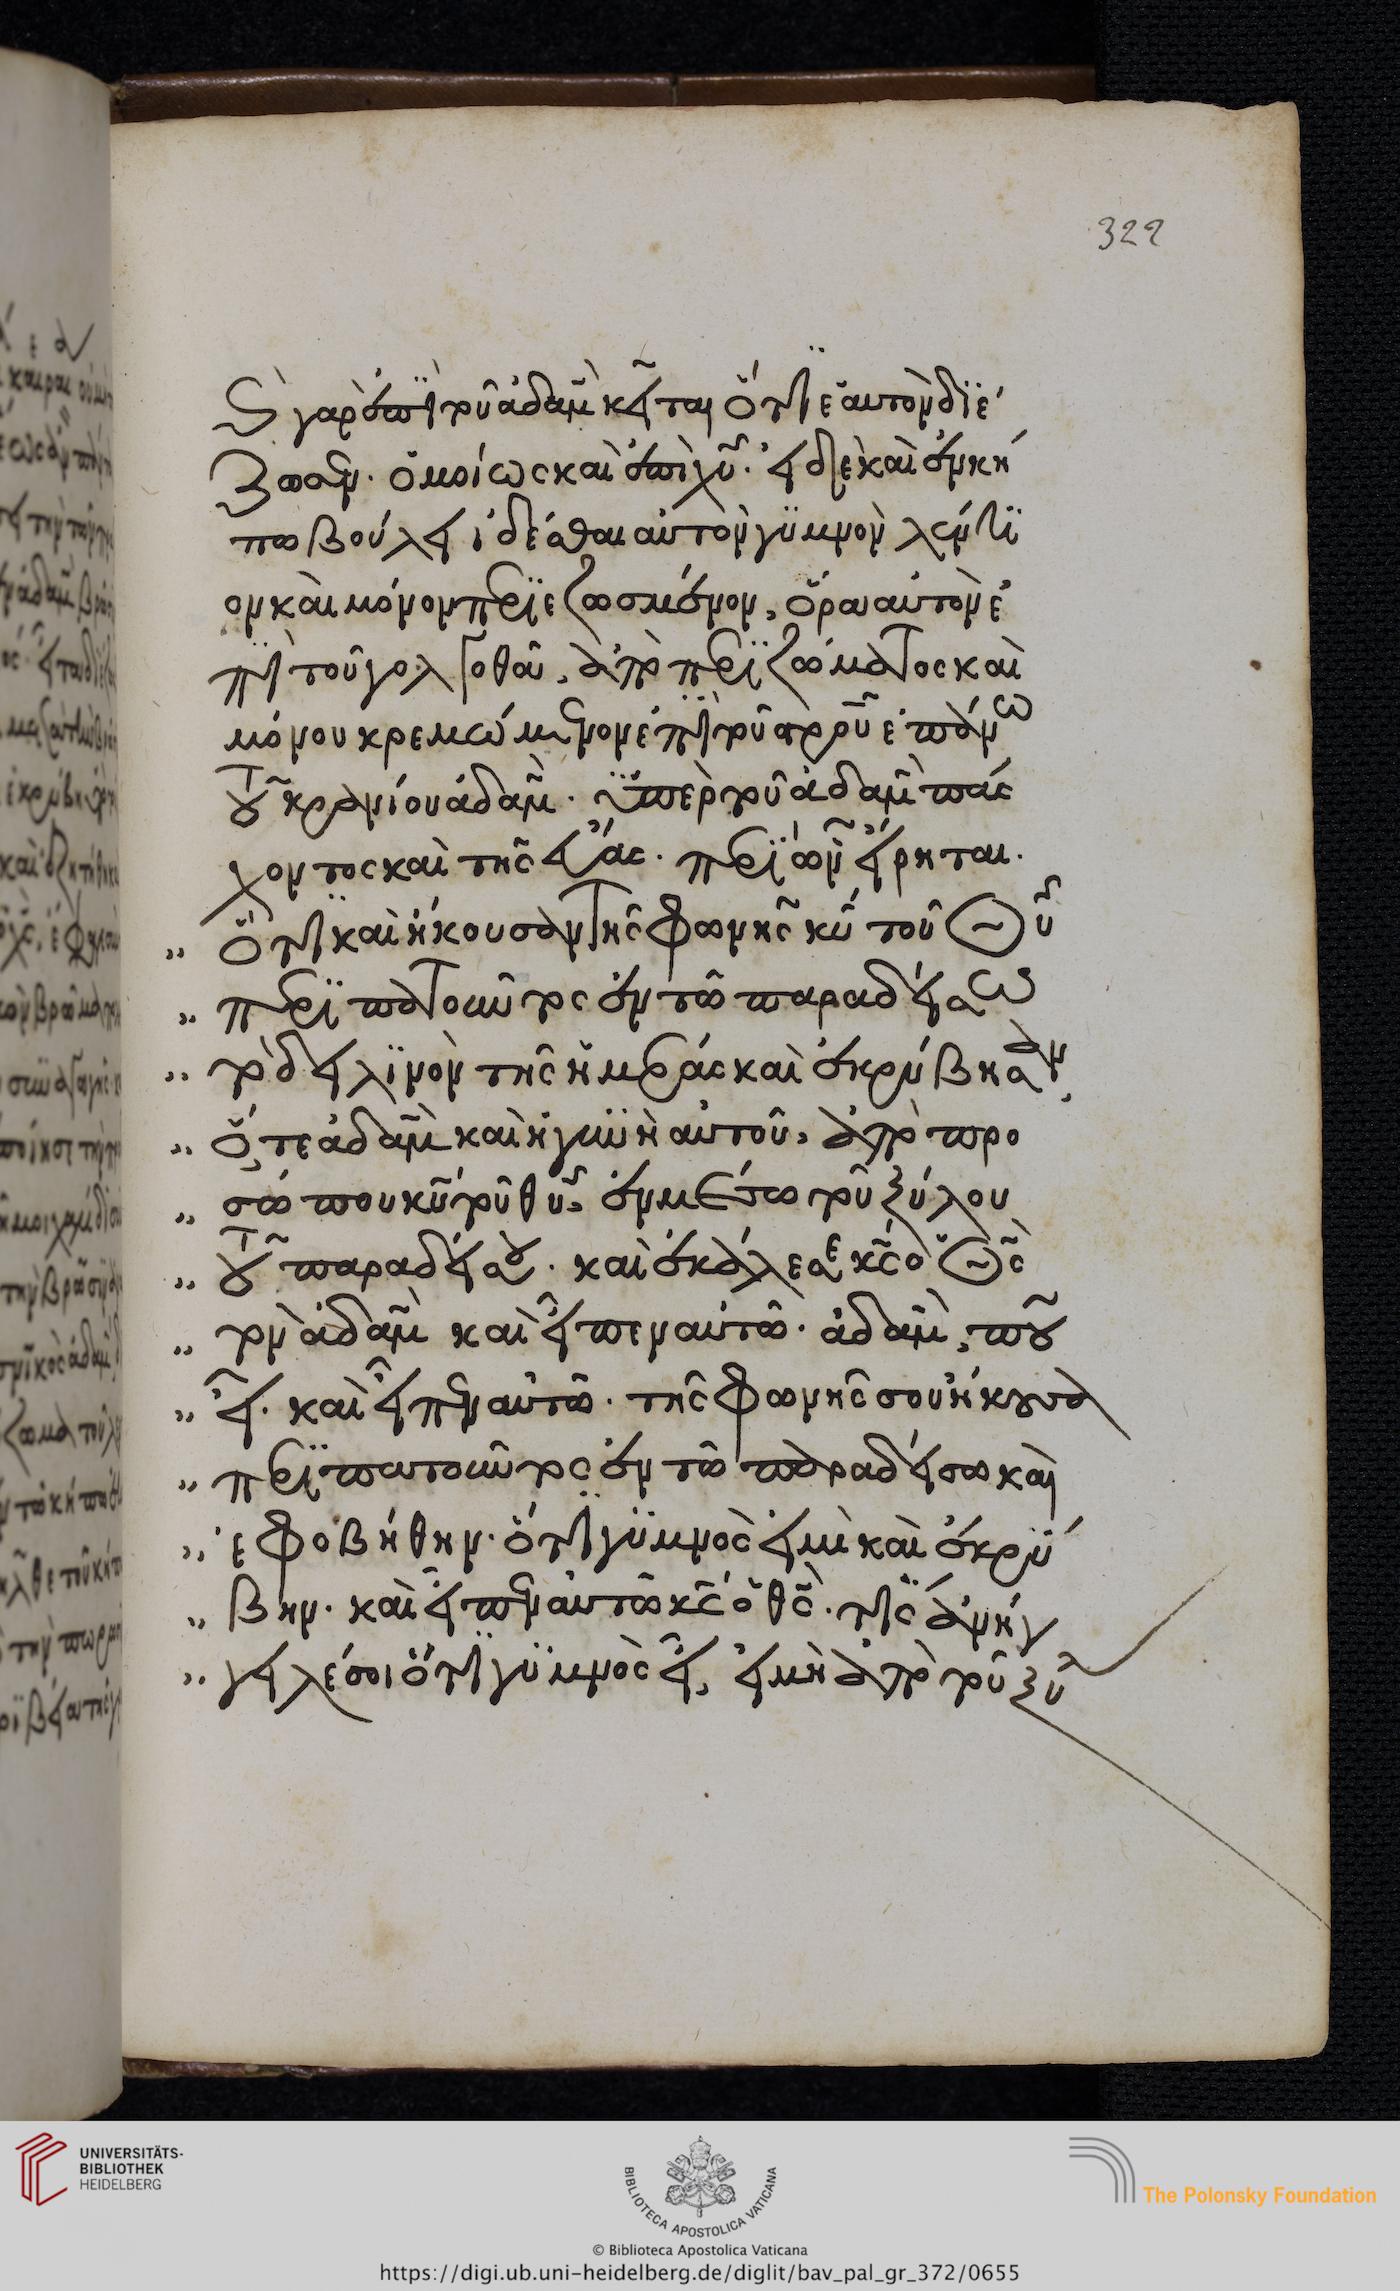 322
ϛ̀ γὰρ ἐπῒ τοῦ ἀδᾶμ κεῖται ὅτϊ ἑαυτὸν διέ
ζωσεν. ὁμοίως καὶ ἐπὶ χῦ. εἰ δὲ καὶ ἐν κή
πω βούλει ἰδέσθαι αὐτὸν γϋμνὸν λέντϊ
ον καὶ μόνον περϊεζωσμένον, ὅρα αὐτὸν ἐ
πῒ τοῦ γολγοθᾶ, ἀπὸ περϊζώματος καὶ
μόνου κρεμώμενον ἐπῒ τοῦ σροῦ ἐπάνω
τοῦ κρανίου ἀδᾶμ. ὑπὲρ τοῦ ἀδᾶμ πάσ
χοντος καὶ τῆς εὔας. περϊ ὧν εἴρηται.
„ ὅτϊ καὶ ἤκουσαν τῆς φωνῆς κῦ τοῦ θῦ
„ περϊπατοῦντος ἐν τῶ παραδείσω
„ τὸ δειλϊνὸν τῆς ἡμέρας καὶ ἐκρύβησαν
„ ὅ,τε ἀδᾶμ καὶ ἡ γϋνὴ αὐτοῦ, ἀπὸ προ
„ σώπου κῦ τοῦ θῦ, ἐν μέσω τοῦ ξύλου
„ τοῦ παραδείσου. καὶ ἐκάλεσε κς ὁ θς
„ τὸν ἀδᾶμ καὶ εἶπεν αὐτῶ. ἀδᾶμ, ποῦ
„ εἶ. καὶ εἶπεν αὐτῶ. τῆς φωνῆς σου ἤκουσα
„ περϊπατοῦντος ἐν τῶ παραδείσω καὶ
„ ἐφοβήθην. ὅτϊ γϋμνὸς εἰμὶ καὶ ἐκρύ
„ βην. καὶ εἶπεν αὐτῶ κς ὁ θς. τίς ἀνήγ
„ γειλέ σοι ὅτϊ γϋμνὸς εἶ, εἰ μὴ ἀπὸ τοῦ ξύ
UNIVERSITÄTS-
BIBLIOTHEK
HEIDELBERG
BIBLIOTECA APOSTOLICA VATICANA
The Polonsky Foundation
© Biblioteca Apostolica Vaticana
https://digi.ub.uni-heidelberg.de/diglit/bav_pal_gr_372/0655